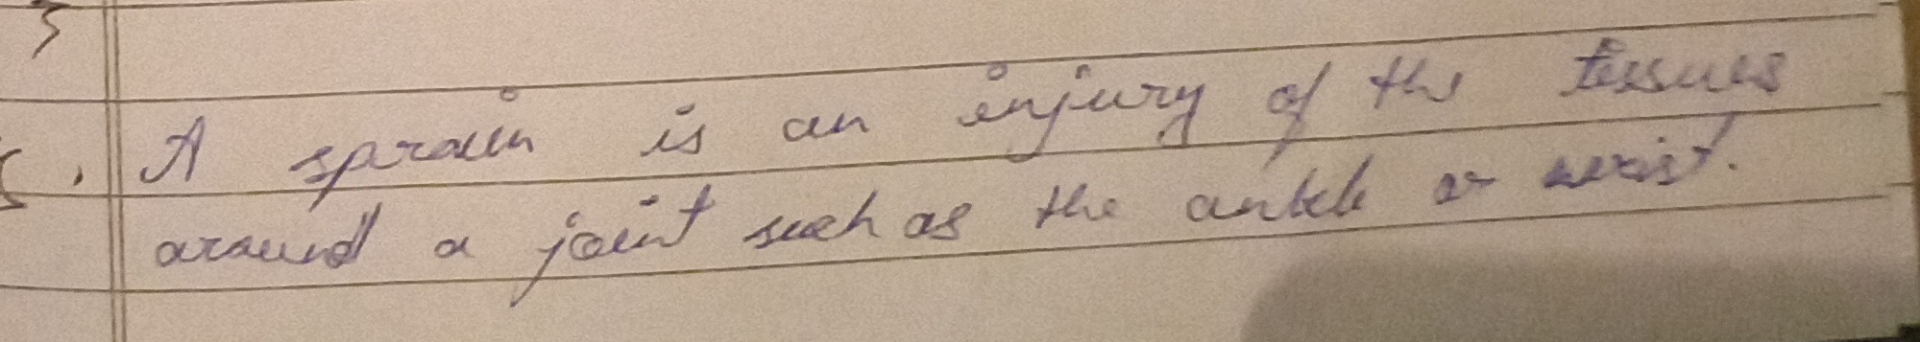 A sprain is an injury of the tissues
around a joint such as the ankle or wrist.